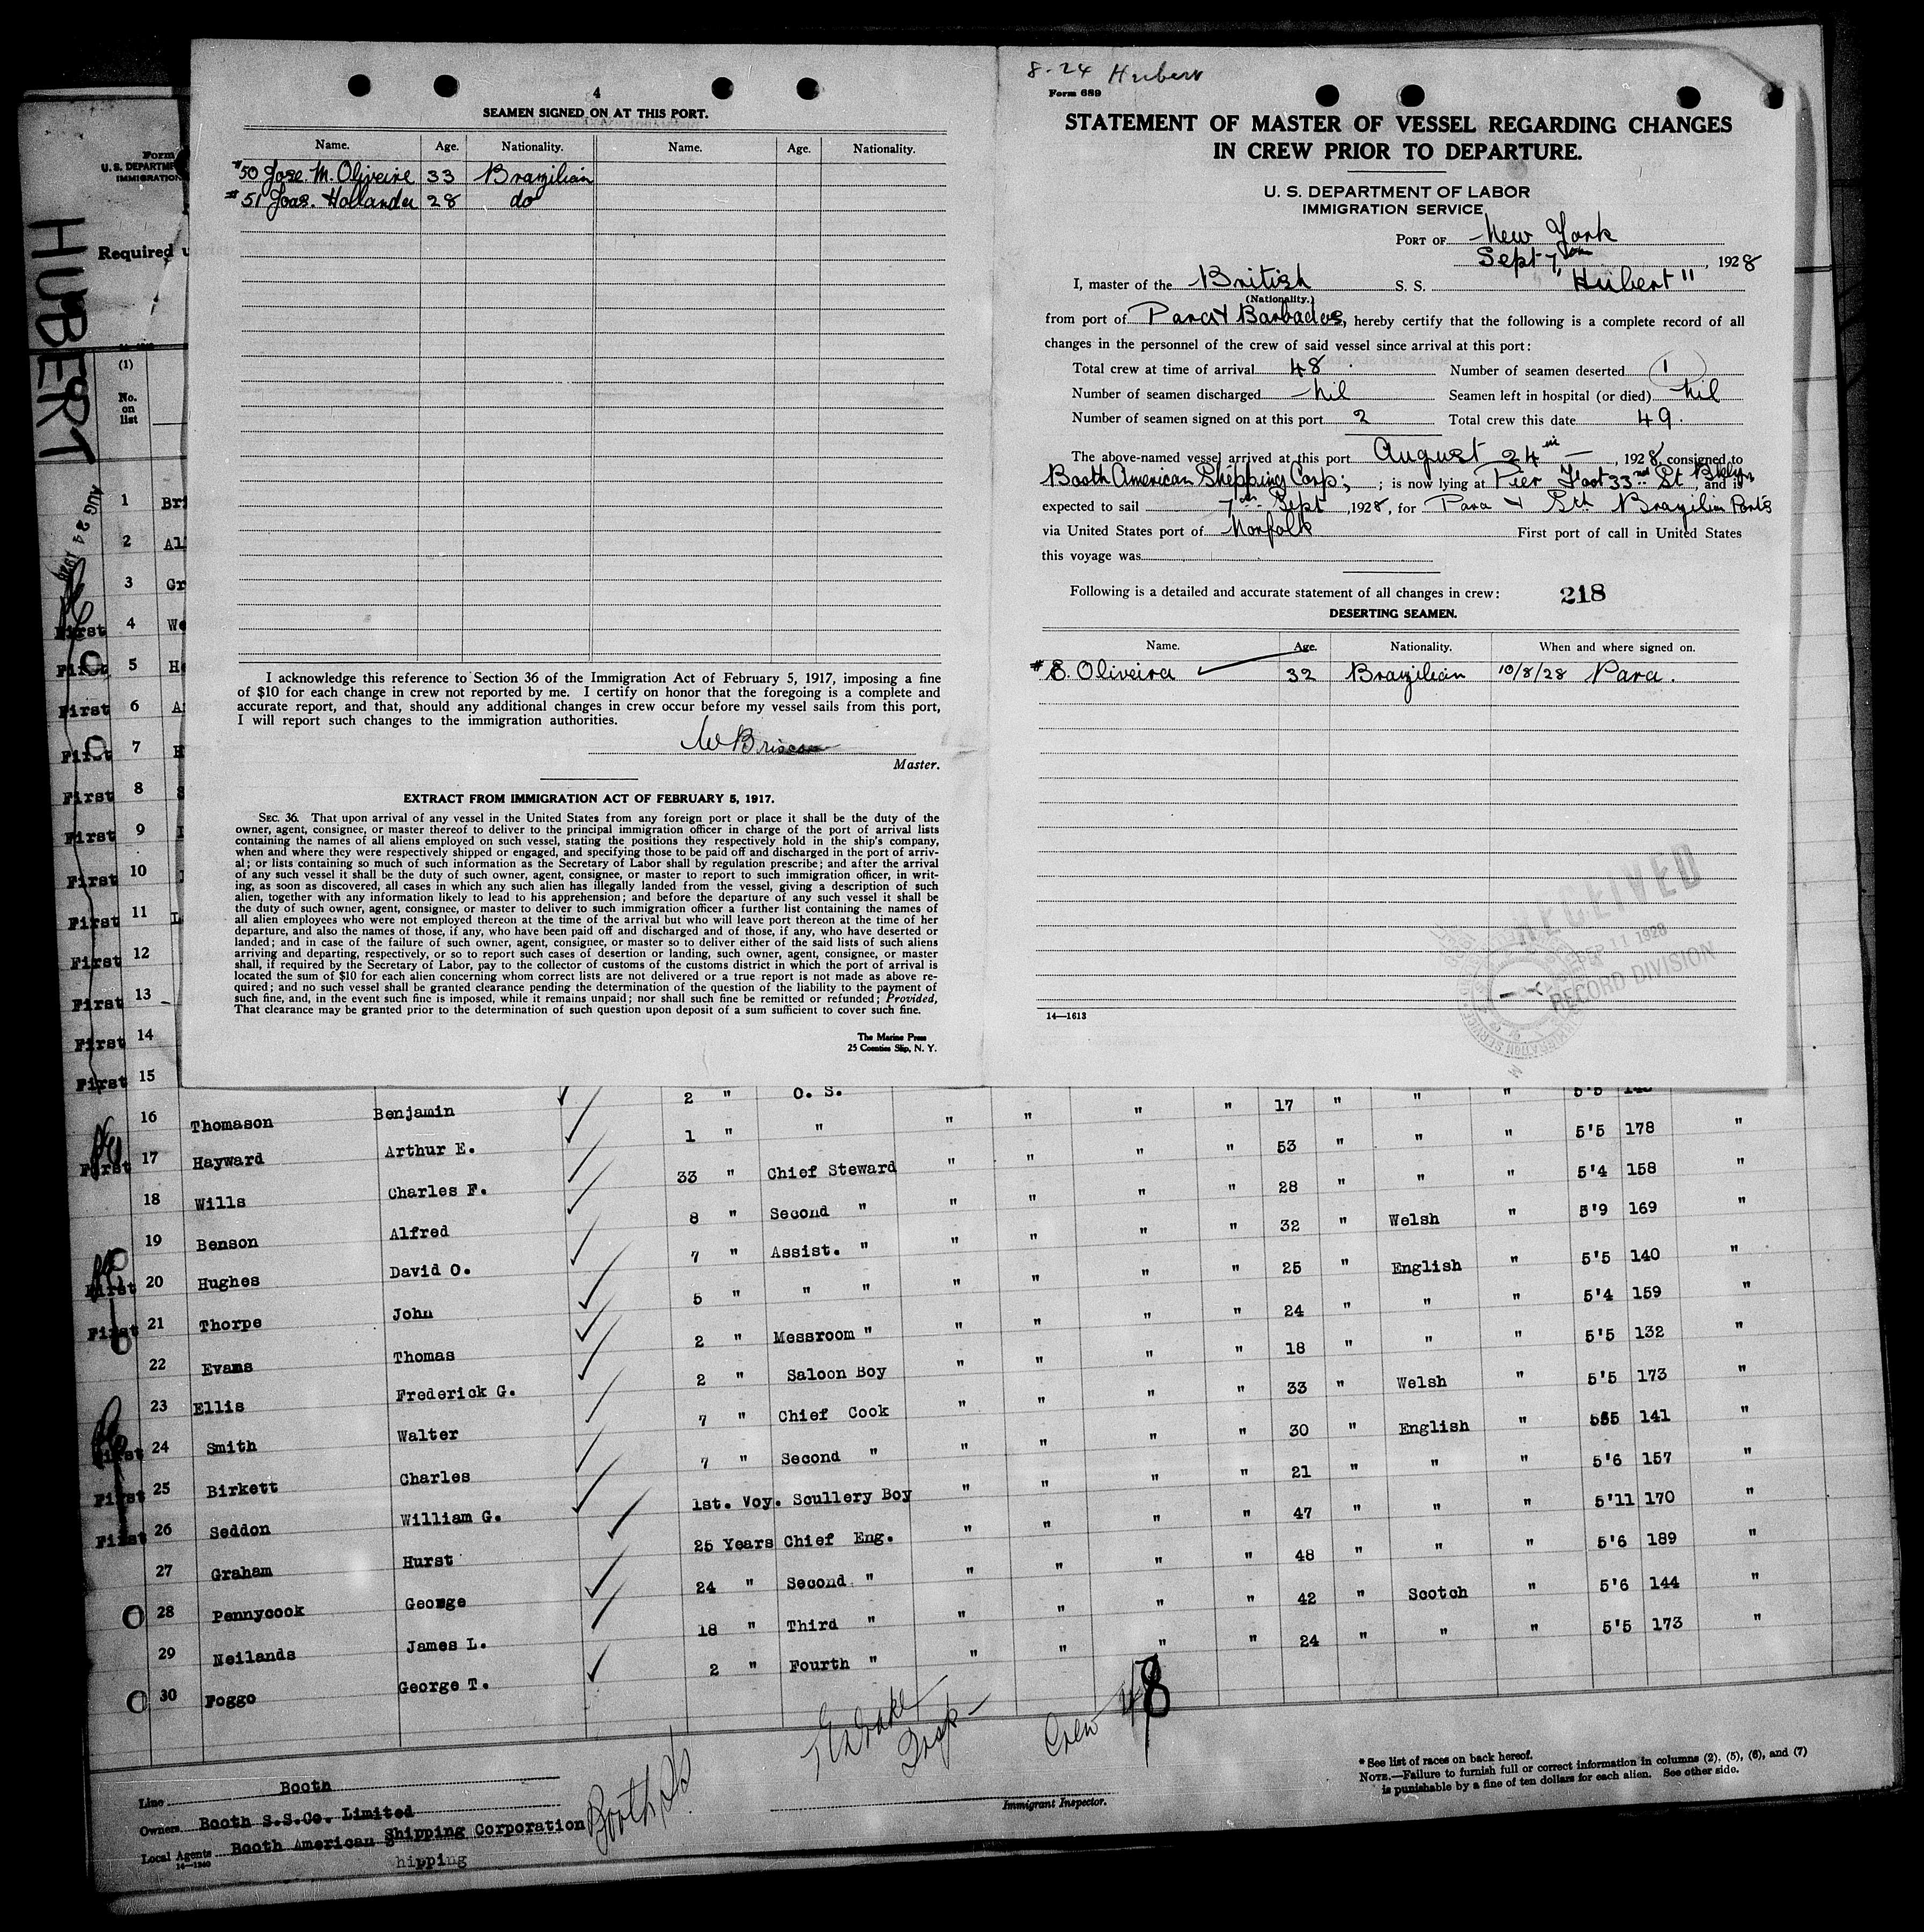 4
SEAMEN SIGNED ON AT THIS PORT.
Name. Age. Nationality. Name. Age. Nationality.
#50 Jose. M. Oliveire 33 Brazilian
#51 Joas. Hollander 28 do
I acknowledge this reference to Section 36 of the Immigration Act of February 5, 1917, imposing a fine
of $10 for each change in crew not reported by me. I certify on honor that the foregoing is a complete and
accurate report, and that, should any additional changes in crew occur before my vessel sails from this port,
I will report such changes to the immigration authorities.
W Briscoe
Master.
EXTRACT FROM IMMIGRATION ACT OF FEBRUARY 5, 1917.
SEC. 36. That upon arrival of any vessel in the United States from any foreign port or place it shall be the duty of the
owner, agent, consignee, or master thereof to deliver to the principal immigration officer in charge of the port of arrival lists
containing the names of all aliens employed on such vessel, stating the positions they respectively hold in the ship's company,
when and where they were respectively shipped or engaged, and specifying those to be paid off and discharged in the port of arriv-
al; or lists containing so much of such information as the Secretary of Labor shall by regulation prescribe; and after the arrival
of any such vessel it shall be the duty of such owner, agent, consignee, or master to report to such immigration officer, in writ-
ing, as soon as discovered, all cases in which any such alien has illegally landed from the vessel, giving a description of such
alien, together with any information likely to lead to his apprehension; and before the departure of any such vessel it shall be
the duty of such owner, agent, consignee, or master to deliver to such immigration officer a further list containing the names of
all alien employees who were not employed thereon at the time of the arrival but who will leave port thereon at the time of her
departure, and also the names of those, if any, who have been paid off and discharged and of those, if any, who have deserted or
landed; and in case of the failure of such owner, agent, consignee, or master so to deliver either of the said lists of such aliens
arriving and departing, respectively, or so to report such cases of desertion or landing, such owner, agent, consignee, or master
shall, if required by the Secretary of Labor, pay to the collector of customs of the customs district in which the port of arrival is
located the sum of $10 for each alien concerning whom correct lists are not delivered or a true report is not made as above re-
quired; and no such vessel shall be granted clearance pending the determination of the question of the liability to the payment of
such fine, and, in the event such fine is imposed, while it remains unpaid; nor shall such fine be remitted or refunded; Provided,
That clearance may be granted prior to the determination of such question upon deposit of a sum sufficient to cover such fine.
The Marine Press
25 Coenties Slip, N. Y.
8-24 Hubert
Form 689
STATEMENT OF MASTER OF VESSEL REGARDING CHANGES
IN CREW PRIOR TO DEPARTURE.
U. S. DEPARTMENT OF LABOR
IMMIGRATION SERVICE
PORT OF New York
Sept 7th, 1928
I, master of the British S. S. "Hubert"
(Nationality.)
from port of Para & Barbados, hereby certify that the following is a complete record of all
changes in the personnel of the crew of said vessel since arrival at this port:
Total crew at time of arrival 48. Number of seamen deserted 1
Number of seamen discharged Nil Seamen left in hospital (or died) Nil
Number of seamen signed on at this port 2 Total crew this date 49.
The above-named vessel arrived at this port August 24th, 1928, consigned to
Booth American Shipping Corp; ; is now lying at Pier Foot 33rd St Bklyn, and is
expected to sail 7th Sept, 1928, for Para & Sth Brazilian Ports
via United States port of Norfolk First port of call in United States
this voyage was
Following is a detailed and accurate statement of all changes in crew: 218
DESERTING SEAMEN.
Name. Age. Nationality. When and where signed on.
# S. Oliveira 32 Brazilian 10/8/28 Para.
RECEIVED
SEP 11 1928
RECORD DIVISION
14—1613
Form
U. S. DEPARTME
IMMIGRATION
HUBERT
Required u
(1)
No.
on
list
AUG 24 1928
1 Bri
2 Al
3 Gr
First 4 We
First 5 He
First 6 A
First 7 H
First 8
First 9
First 10
First 11 L
First 12
First 13
First 14
First 15
16 Thomason Benjamin 2 " O. S. " " " " 17 " " " 5'5
First 17 Hayward Arthur E. 1 " " " " " " 53 " " " 5'5 178 "
18 Wills Charles F. 33 " Chief Steward " " " " 28 " " " 5'4 158 "
19 Benson Alfred 8 " Second " " " " " 32 " Welsh " 5'9 169 "
First 20 Hughes David O. 7 " Assist. " " " " " 25 " English " 5'5 140 "
First 21 Thorpe John 5 " " " " " " " 24 " " " 5'4 159 "
22 Evans Thomas 2 " Messroom " " " " " 18 " " " 5'5 132 "
23 Ellis Frederick G. 2 " Saloon Boy " " " " 33 " Welsh " 5'5 173 "
First 24 Smith Walter 7 " Chief Cook " " " " 30 " English " 5'5 141 "
First 25 Birkett Charles 7 " Second " " " " " 21 " " " 5'6 157 "
First 26 Seddon William G. 1st. Voy. Scullery Boy " " " " 47 " " " 5'11 170 "
27 Graham Hurst 25 Years Chief Eng. " " " " 48 " " " 5'6 189 "
28 Pennycook George 24 " Second " " " " " 42 " Scotch " 5'6 144 "
29 Neilands James L. 18 " Third " " " " " 24 " " " 5'5 173 "
30 Foggo George T. 2 " Fourth "
Insp
Crew 48
Line Booth
Owners Booth S.S.Co. Limited
Local Agents Booth American Shipping Corporation
hipping
14—1240
Immigrant Inspector.
* See list of races on back hereof.
NOTE.—Failure to furnish full or correct information in columns (2), (5), (6), and (7)
is punishable by a fine of ten dollars for each alien. See other side.